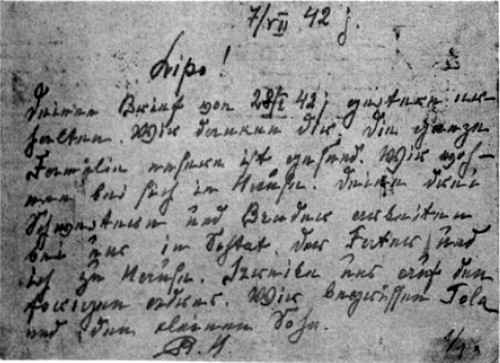 7/VII 42 j.
Lipo!
Deinen Brief von 28/I 42 j gestern er-
halten. Wir danken dir. Die ganze
Familie unsere ist gesund. Wir woh-
nen bei sich im Hause. Deine drei
Schwestern und Bruder arbeiten
bei uns im Schtat, der Fater und
ich zu Hause. Schreibe uns auf den
forigen adres. Wir begrüssen Tola
und den kleinen Sohn.